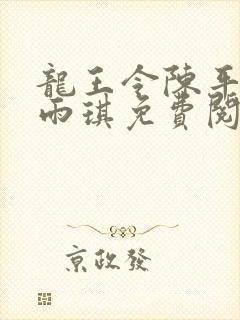 龍王令陳平
雨琪免費閱
京政發